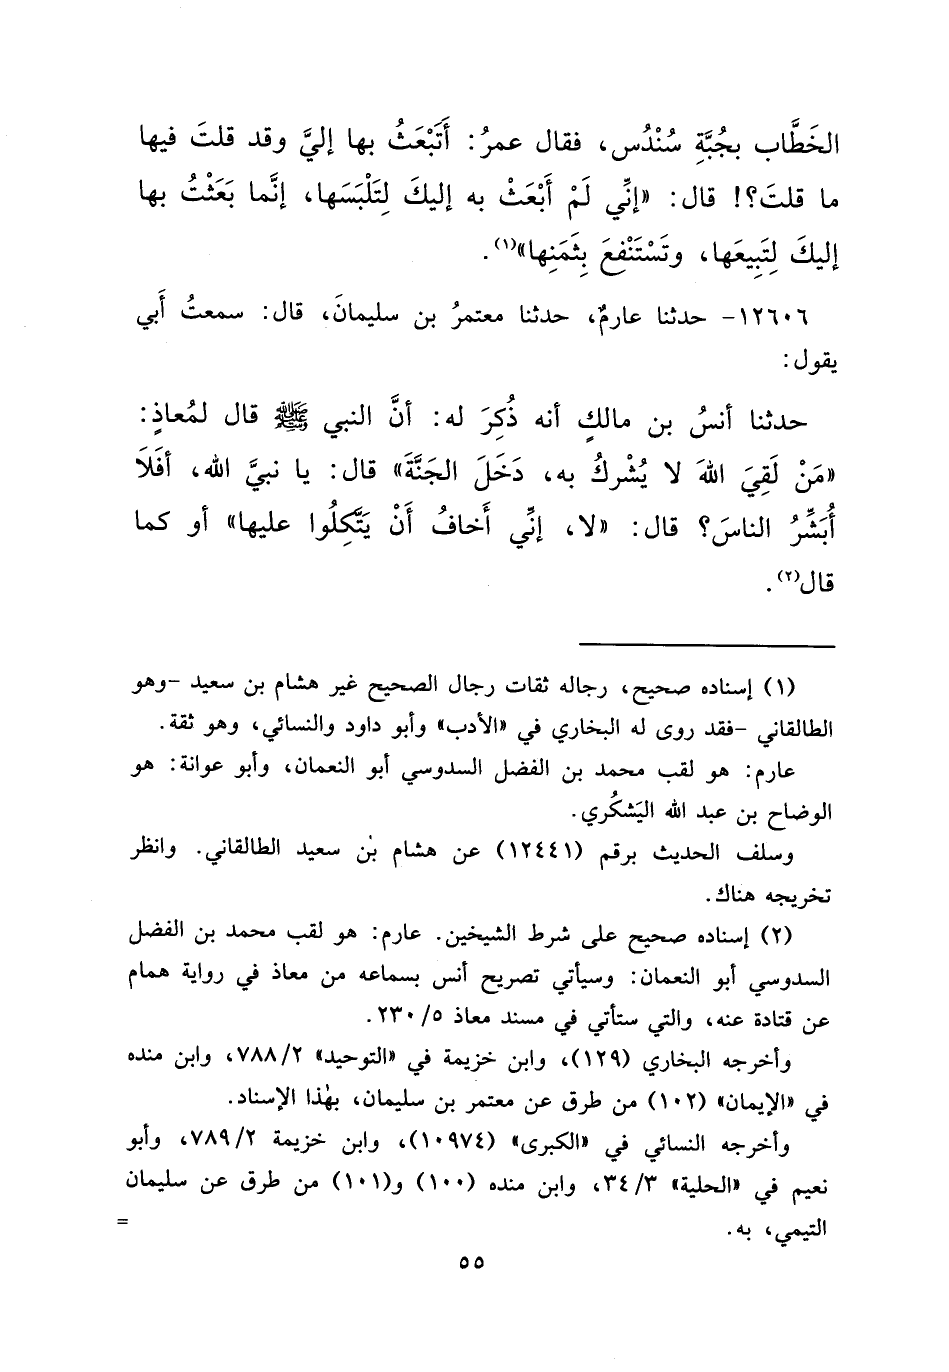 الخَطَّاب بجُبَّةِ سُنْدُس، فقال عمرُ: أَتَبْعَثُ بها إليَّ وقد قلتَ فيها
ما قلتَ؟! قال: «إنِّي لَمْ أَبْعَثْ به إليكَ لِتَلْبَسَها، إنَّما بَعَثْتُ بها
إليكَ لِتَبِيعَها، وتَسْتَنْفِعَ بِثَمَنِها»(١).
١٢٦٠٦- حدثنا عارمٌ، حدثنا معتمرُ بن سليمانَ، قال: سمعتُ أَبي
يقول:
حدثنا أنسُ بن مالكٍ أنه ذُكِرَ له: أنَّ النبي ﷺ قال لمُعاذٍ:
«مَنْ لَقِيَ اللهَ لا يُشْركُ به، دَخَلَ الجَنَّةَ» قال: يا نبيَّ الله، أفَلَا
أُبَشِّرُ الناسَ؟ قال: «لا، إنِّي أَخافُ أَنْ يَتَّكِلُوا عليها» أو كما
قال(٢).
(١) إسناده صحيح، رجاله ثقات رجال الصحيح غير هشام بن سعيد -وهو
الطالقاني -فقد روى له البخاري في «الأدب» وأبو داود والنسائي، وهو ثقة.
عارم: هو لقب محمد بن الفضل السدوسي أبو النعمان، وأبو عوانة: هو
الوضاح بن عبد الله اليَشكُري.
وسلف الحديث برقم (١٢٤٤١) عن هشام بْن سعيد الطالقاني. وانظر
تخريجه هناك.
(٢) إسناده صحيح على شرط الشيخين. عارم: هو لقب محمد بن الفضل
السدوسي أبو النعمان: وسيأتي تصريح أنس بسماعه من معاذ في رواية همام
عن قتادة عنه، والتي ستأتي في مسند معاذ ٢٣٠/٥.
وأخرجه البخاري (١٢٩)، وابن خزيمة في «التوحيد» ٧٨٨/٢، وابن منده
في «الإيمان» (١٠٢) من طرق عن معتمر بن سليمان، بهٰذا الإسناد.
وأخرجه النسائي في «الكبرى» (١٠٩٧٤)، وابن خزيمة ٧٨٩/٢، وأبو
نعيم في «الحلية» ٣٤/٣، وابن منده (١٠٠) و(١٠١) من طرق عن سليمان
التيمي، به. =
٥٥